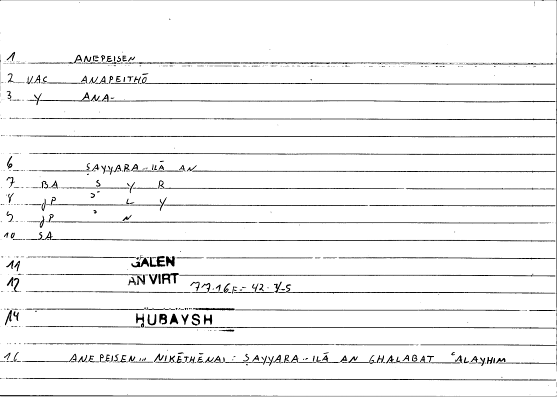 1 ANEPEISEN
2 VAC ANAPEITHŌ
3 Y ANA-
6 ṢAYYARA--ILĀ AN
7 BA Ṣ Y R
8 JP ʾ L Y
9 JP ʾ N
10 SA
11 GALEN
12 AN VIRT 77.16
14 ḤUBAYSH
16 ANEPEISEN... NIKĒTHĒNAI: ṢAYYARA--ILĀ AN GHALABAT ʿALAYHIM